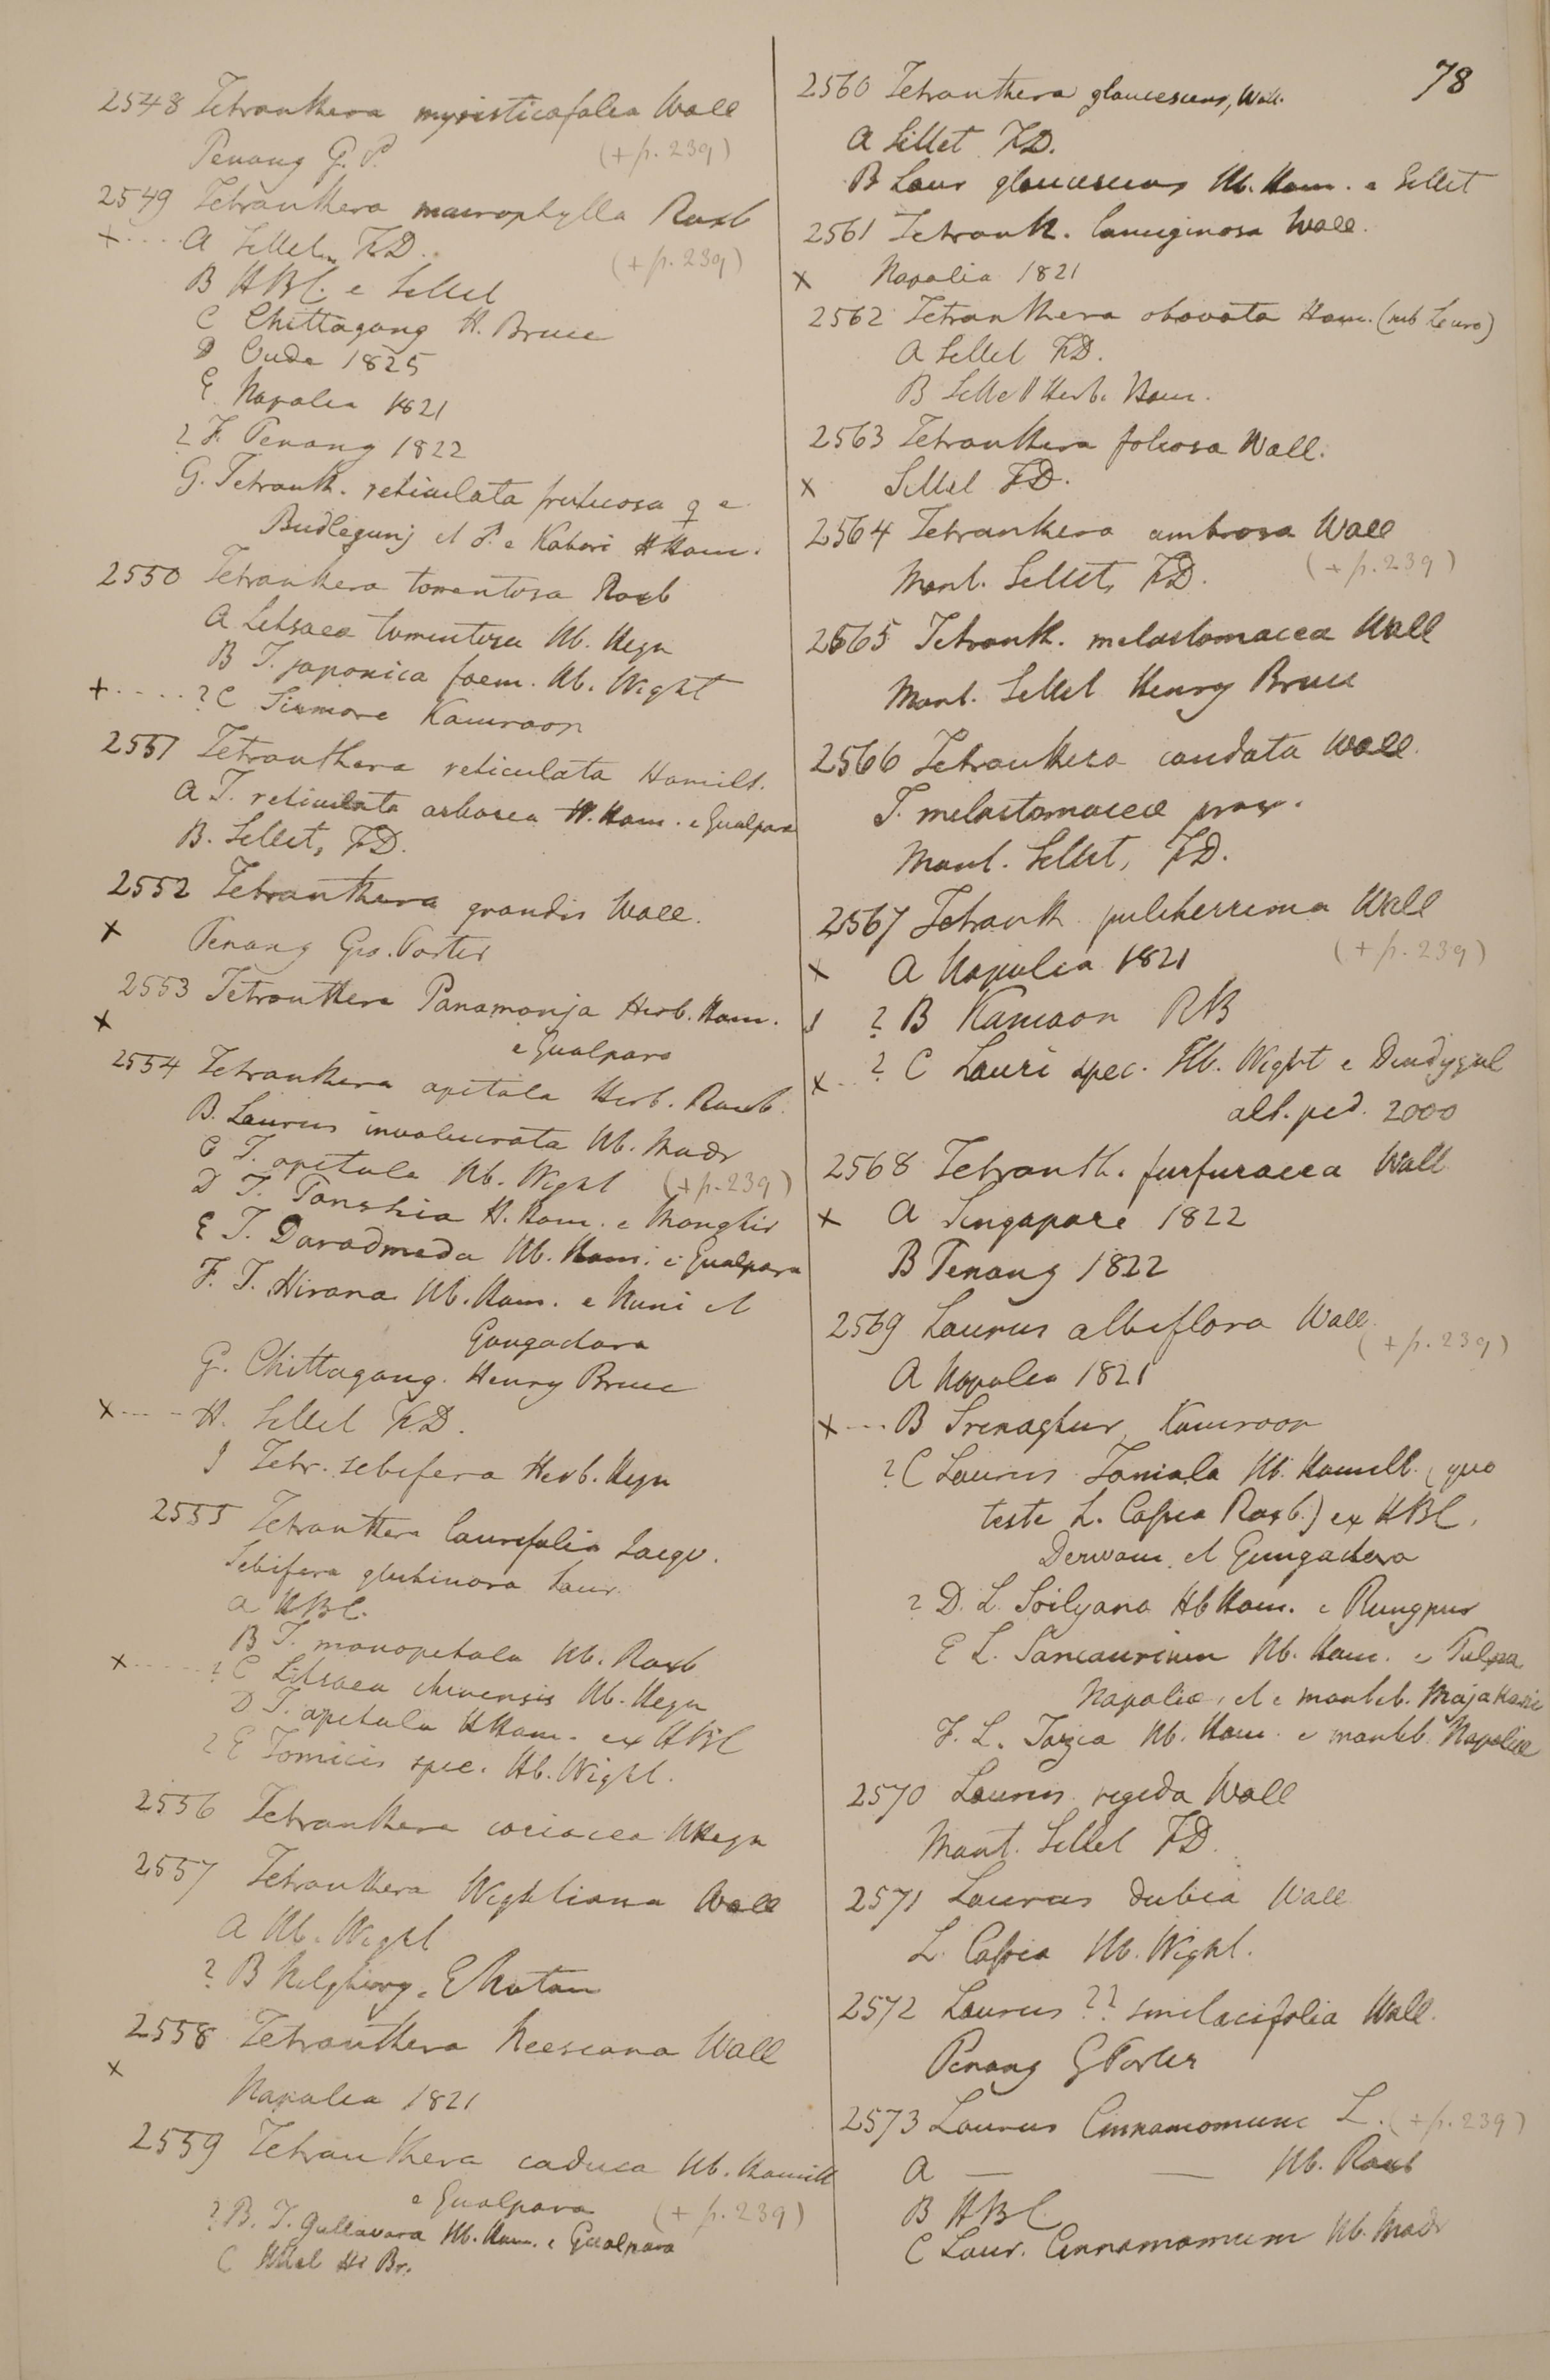 78
2548 Tetranthera myristicafolia Wall
Penang G. P. (+ p. 239)
2549 Tetranthera macrophylla Roxb
+ .... A Sillet FD. (+ p. 239)
B HBC. e Sillet
C Chittagong H. Bruce
D Oude 1825
E Napalia 1821
? F. Penang 1822
G. Tetranth. reticulata fruticosa q e
Budlegunj et P. e Kabari HHam.
2550 Tetranthera tomentosa Roxb
A Litsaea tomentosa Hb. Heyn
B T. japonica foem. Hb. Wight
+ ..... ? C Sirmore Kamroon
2551 Tetranthera reticulata Hamilt.
A T. reticulata arborea H. Ham. e Gualpara
B. Sillet, FD.
2552 Tetranthera grandis Wall.
x Penang Geo. Porter
2553 Tetranthera Panamonja Herb. Ham.
x e Gualpara
2554 Tetranthera apetala Herb. Roxb.
B. Laurus involucrata Hb. Madr
C T. apetala Hb. Wight (+ p. 239)
D T. Tanshia H. Ham. e Monghir
E T. Daradmeda Hb. Ham. e Gualpara
F. T. Hirana Hb. Ham. e Nuni et
Gongachora
G. Chittagong. Henry Bruce
x --- H. Sillet FD.
I Tetr. sebifera Herb. Heyn
2555 Tetranthera laurifolia Jacqu.
Sebifera glutinosa Lour.
A HBC.
B T. monopetala Hb. Roxb
x ..... ? C Litsaea chinensis Hb. Heyn
D T. apetala HHam. ex HBC
? E Tomicis spec. Hb. Wight.
2556 Tetranthera coriacea HHeyn
2557 Tetranthera Wightiana Wall
A Hb. Wight
? B Nilghiry, E Noton
2558 Tetranthera Neesiana Wall
x
Napalia 1821
2559 Tetranthera caduca Hb. Hamilt
e Gualpara (+ p. 239)
? B. T. Gullavara Hb. Ham. e Gualpara
C Sillet H. Br.
2560 Tetranthera glaucescens, Wall.
A Sillet FD.
B Laur glaucescens Hb. Ham. e Sillet
2561 Tetranth. lanuginosa Wall.
x Napalia 1821
2562 Tetranthera obovata Ham. (sub Lauro)
A Sillet FD.
B Sillet Herb. Ham.
2563 Tetranthera foliosa Wall.
x Sillet FD.
2564 Tetranthera umbrosa Wall
Mont. Sillet, FD. (+ p. 239)
2565 Tetranth. melastomacea Wall
Mont. Sillet Henry Bruce
2566 Tetranthera caudata Wall.
T. melastomacea prox.
Mont. Sillet, FD.
2567 Tetranth pulcherrima Wall
x A Napalia 1821 (+ p. 239)
? B Kamaon RB
x .. ? C Lauri spec. Hb. Wight e Dindygul
alt. ped. 2000
2568 Tetranth. furfuracea Wall
x A Singapore 1822
B Penang 1822
2569 Laurus albiflora Wall. (+ p. 239)
A Napalia 1821
x --- B Srenaghur, Kamroon
? C Laurus Tomiala Hb. Hamilt. (quo
teste L. Cassia Roxb.) ex HBC,
Derwam. et Gungachora
? D. L. Soilyana Hb Ham. e Rungpur
E L. Sancaurium Hb. Ham. e Tulpa
Napaliae, et e montib. Majakasie
F. L. Jazia Hb. Ham. e montib. Napaliae
2570 Laurus rigida Wall
Mont. Sillet FD.
2571 Laurus dubia Wall
L. Cassia Hb. Wight.
2572 Laurus ?? smilacifolia Wall.
Penang GPorter
2573 Laurus Cinnamomum L. (+ p. 239)
A — — Hb. Roxb
B HBC
C Laur. Cinnamomum Hb. Madr